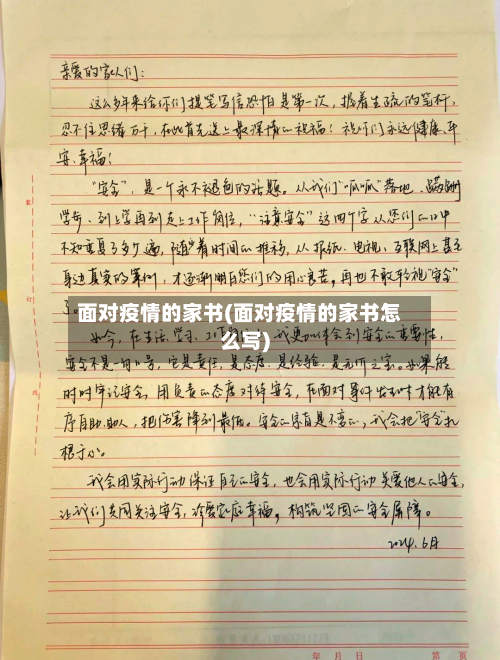 亲爱的家人们：
这么多年来给你们提笔写信恐怕是第一次，握着生疏的笔杆，
忍不住思绪万千，在此首先送上最深情的祝福：祝你们永远健康、平
安、幸福！
“安全”，是一个永不褪色的话题。从我们“呱呱”落地、蹒跚
学步、到上学再到走上工作岗位，“注意安全”这四个字从您们的口中
不知重复了多少遍，随着时间的推移，从报纸、电视、互联网上甚至
身边真实的案例，才逐渐明白您们的用心良苦。再也不敢轻视“安全”
了。
面对疫情的家书(面对疫情的家书怎
么写)
如今，在生活、学习、工作 我更加体会到安全的重要性，
安全不是一句口号，它是责任，是态度，是经验，是无价之宝。如果能
时时牢记安全，用负责的态度对待安全，在面对事件发生时才能有
序自助、助人，把伤害降到最低。安全的 是不变的，我会把“安全”扎
根于心。
我会用实际行动保证自己的安全，也会用实际行动关爱他人的安全，
让我们共同关注安全，珍爱家庭幸福，构筑坚固的安全屏障。
2024.6月
年 月 日 第 页